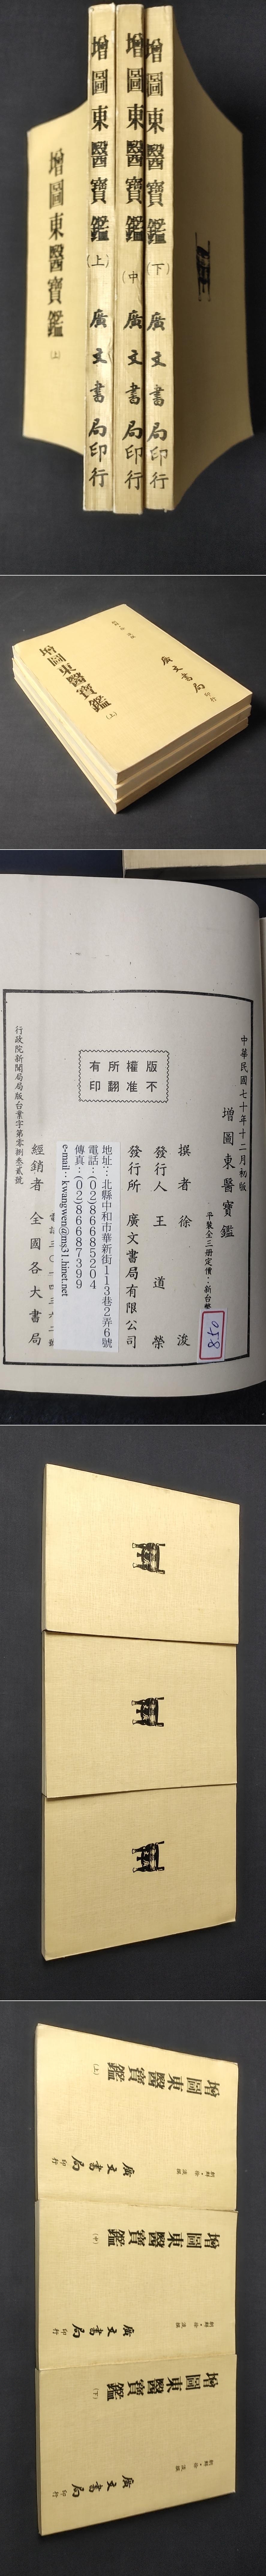 增圖東醫寶鑑
(上)
增圖東醫寶鑑(上) 廣文書局印行
增圖東醫寶鑑(中) 廣文書局印行
增圖東醫寶鑑(下) 廣文書局印行
增圖東醫寶鑑
(上)
廣文書局
印行
中華民國七十年十二月初版
增圖東醫寶鑑
平裝全三冊定價:新台幣
850
撰者 徐 浚
發行人 王道榮
發行所 廣文書局有限公司
地址:北縣中和市華新街113巷2弄6號
電話:(02)86685204
傳真:(02)86687399
e-mail:kwangwen@ms31.hinet.net
經銷者 全國各大書局
行政院新聞局局版台業字第零捌叁貳號
版權所有
不准翻印
增圖東醫寶鑑
(上)
廣文書局
印行
增圖東醫寶鑑
(中)
廣文書局
印行
增圖東醫寶鑑
(下)
廣文書局
印行